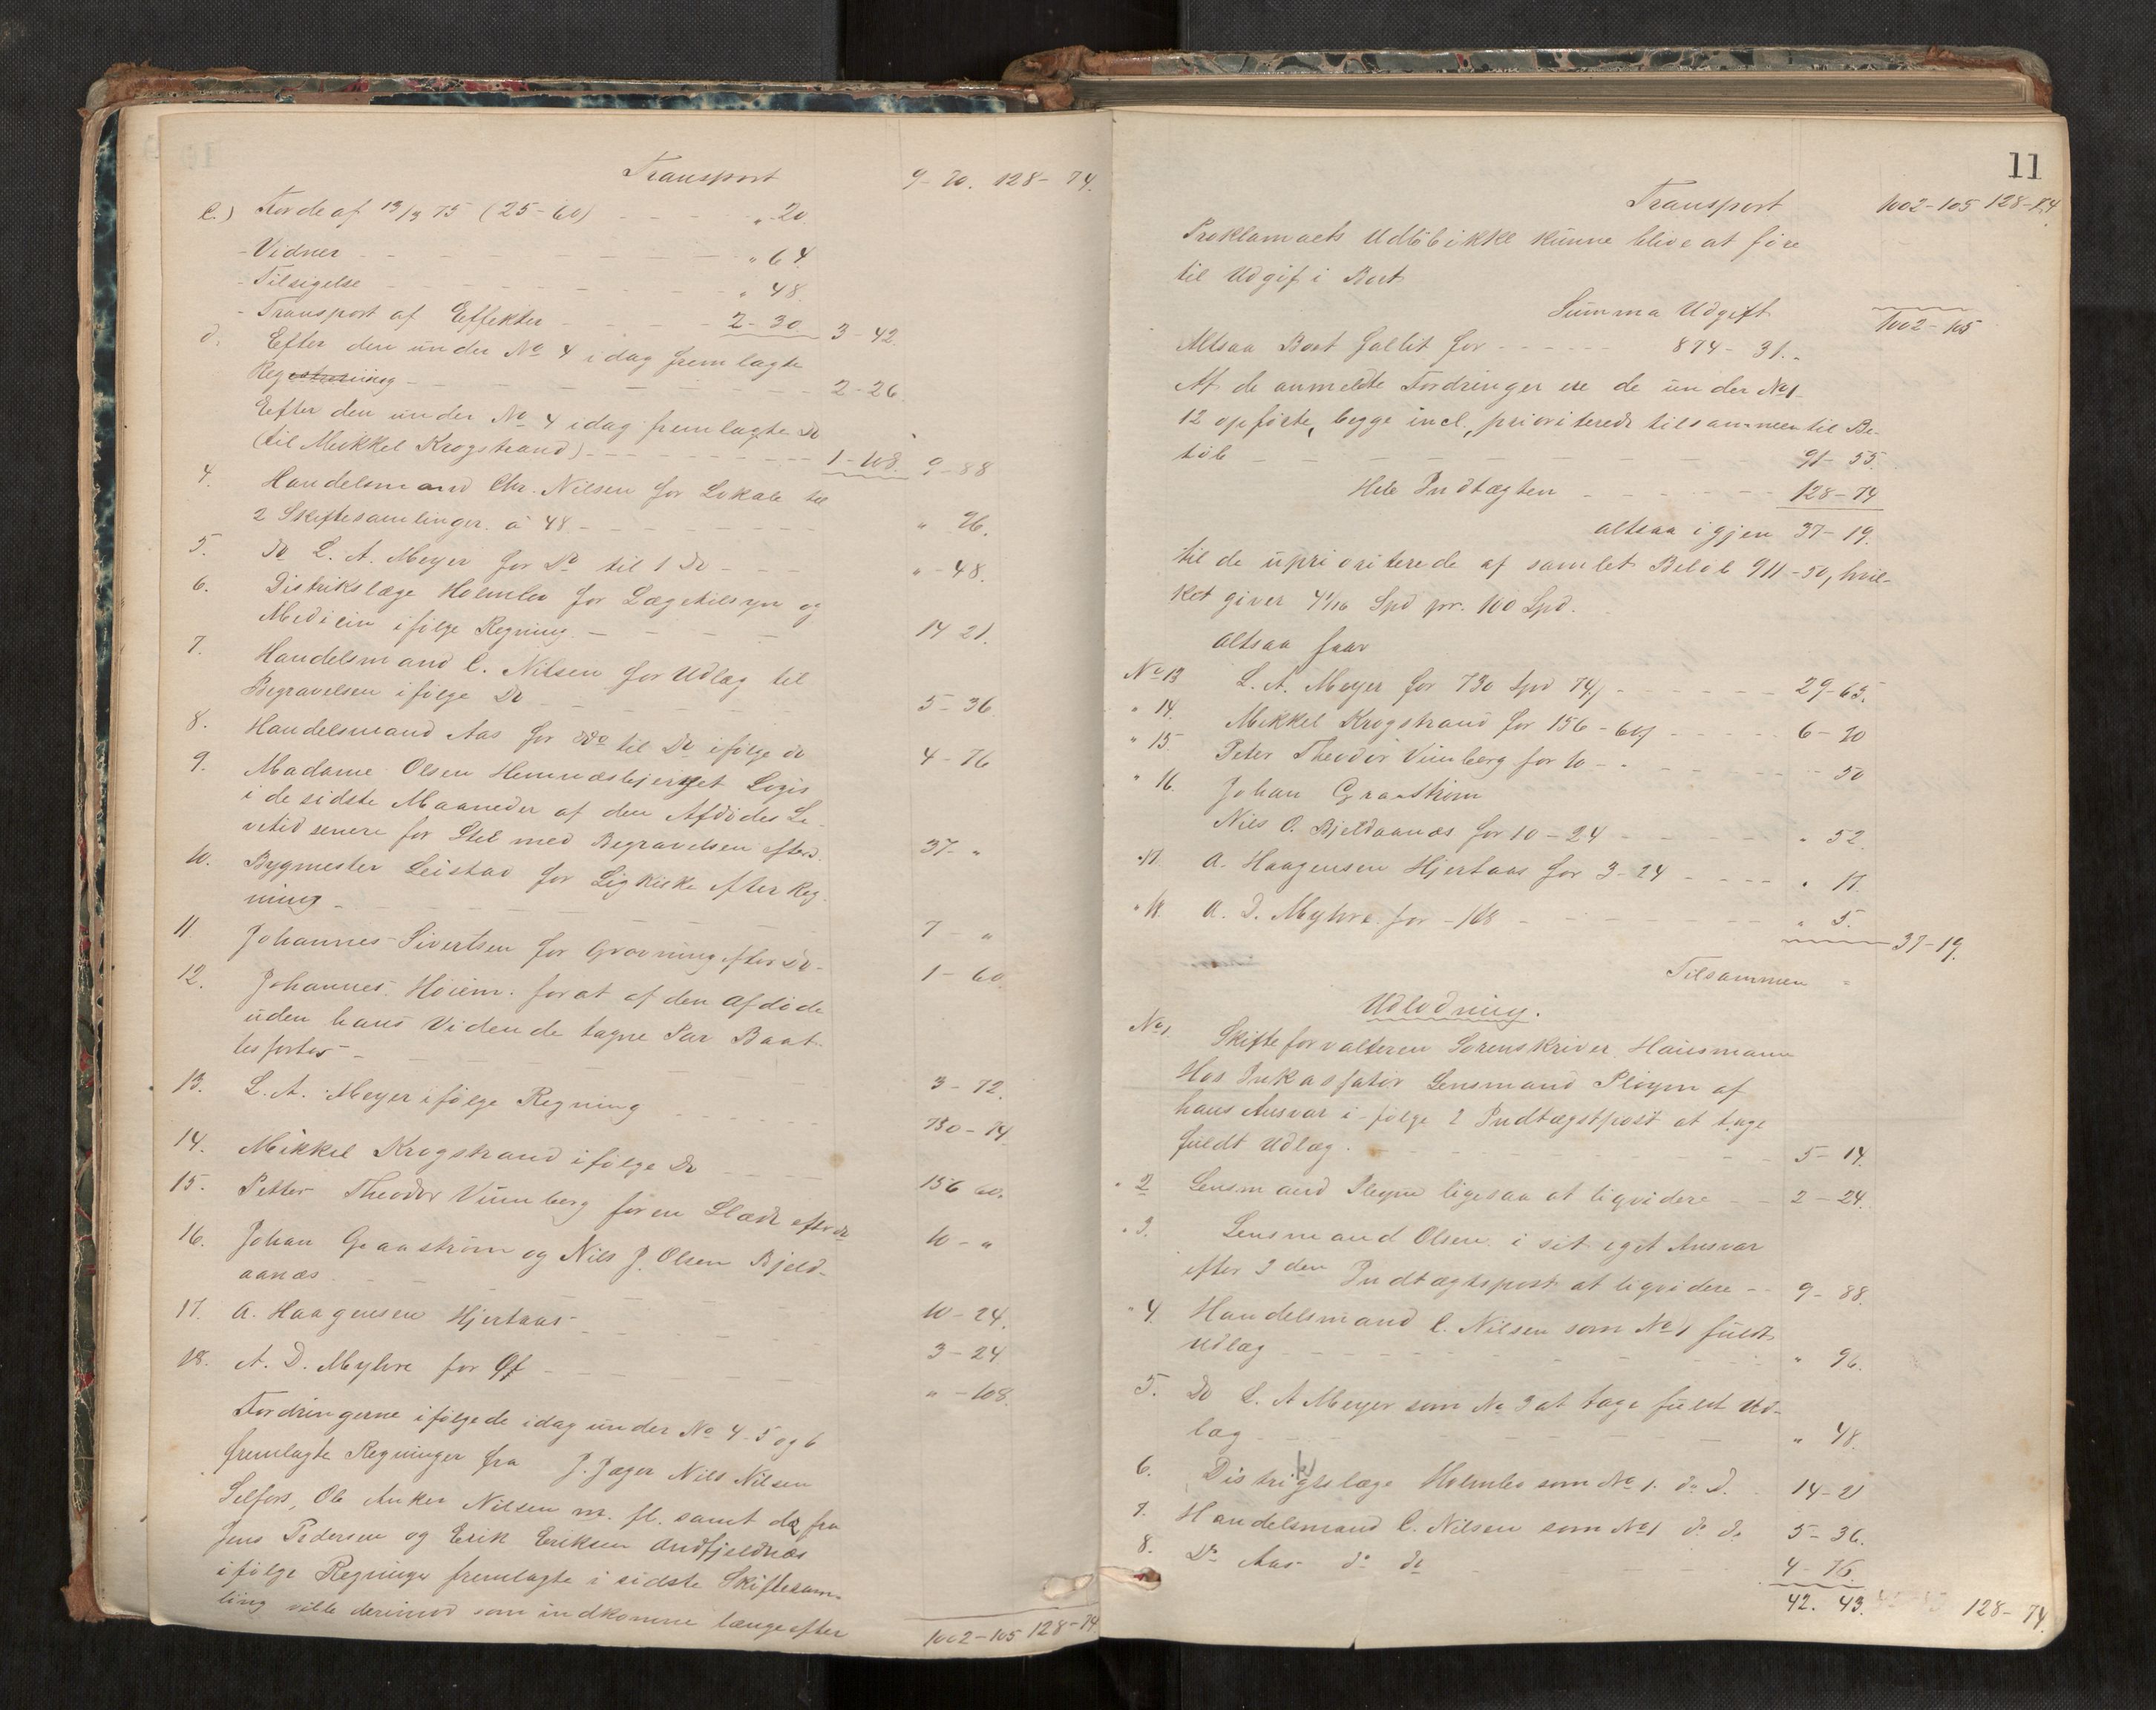 Transport 9-70. 128-74.
c.) Forde af 13/3 75 (25-60) „ 20
- Vidner „ 64
- Tilsigelse „ 48.
- Transport af Effekter 2-30 3-42.
d. Efter den under No 4 idag fremlagte
Registrering 2-26.
Efter den under No 4 idag fremlagte Do
(til Mikkel Krogstrand) 1-108. 9-88
4. Handelsmand Chr. Nilsen for Lokale til
2 Skiftesamlinger. á 48 „ 96.
5. Do L. A. Meyer for Do til 1 Do „-48.
6. Distrikslæge Holmbo for Lægetilsyn og
Medicin ifølge Regning 14 21.
7. Handelsmand C. Nilsen for Udlæg til
Begravelsen ifølge Do 5-36
8. Handelsmand Aas for Do til Do ifølge do 4-76
9. Madame Olsen Hemnæsbjerget Logis
i de sidste Maaneder af den Afdødes Le-
vetid senere for Stel med Begravelsen efter 37-„
10. Bygmester Leistad for Ligkiste efter Reg-
ning 7-„
11 Johannes Sivertsen for Gravning efter Do 1-60.
12. Johannes Høiem. for at af den afdøde
uden hans Vidende tagne Par Baat-
3-72.
13. L. A. Meyer ifølge Regning 730-74
14. Mikkel Krogstrand ifølge Do 156 60.
15. Petter Theodor Vinnberg for en Slæde efter do 10-„
16. Johan Graastrøm og Nils J. Olsen Bjeld-
aanæs 10-24.
17. A. Haagensen Hjertaas 3-24
18. A. D. Myhre for 
„-108.
Fordringerne ifølge de idag under No 4-5 og 6
fremlagte Regninger fra J. Jæger Nils Nilsen
Selfors, Ole Anker Nilsen m. fl. samt de fra
Jens Pedersen og Erik Eriksen Andfjeldnæs
ifølge Regninger fremlagte i sidste Skiftesam-
ling ville derimod som indkomne længe efter
1002-105 128-74
11
Transport 1002-105 128-74
Proklamaets Udløb ikke kunne blive at føre
til Udgif i Boet
Summa Udgift 1002-105
Altsaa Boet fallit for 874-31.
Af de anmeldte Fordringer ere de under No 1-
12 opførte, begge incl., prioriterede tilsammen til Be-
løb 91-55.
Hele Indtægten 128-74
altsaa igjen 37-19.
til de uprioriterede af samlet Beløb 911-50, hvil-
ket giver 4 1/16 Spd pr. 100 Spd.
altsaa faar
No 13 L. A. Meyer for 730 Spd 74 29-63.
„ 14. Mikkel Krogstrand for 156-60 6-20
„ 15 Peter Theodor Vinnberg for 10- 50
„ 16. Johan Graastrøm
Nils O. Bjeldaanæs for 10-24 „ 52.
„ 17. A. Haagensen Hjertaas for 3-24 „ 17.
„ 18. A. D. Myhre for -108 „ 5.
37-19.
Tilsammen =
Udlodning.
No 1 Skifteforvalteren Sorenskriver Hausmann
Hos Inkassator Lensmand Pløym af
hans Ansvar i følge 2 Indtægstpost at tage
fuldt Udlæg 5-14.
„ 2 Lensmand Pløym ligesaa at liqvidere 2-24.
„ 3. Lensmand Olsen i sit eget Ansvar
efter 3den Indtægtspost at liqvidere 9-88.
„ 4. Handelsmand C. Nilsen som No 1 fuldt
Udlæg „ 96.
5. Do L. A Meyer som No 3 at tage fuldt Ud-
læg „ 48.
6. Distriktslæge Holmbo som No 1. do D. 14-21
7. Handelsmand C. Nilsen som No 1 do do 5-36.
8. Do Aas do do 4-76.
42. 43. 128-74.